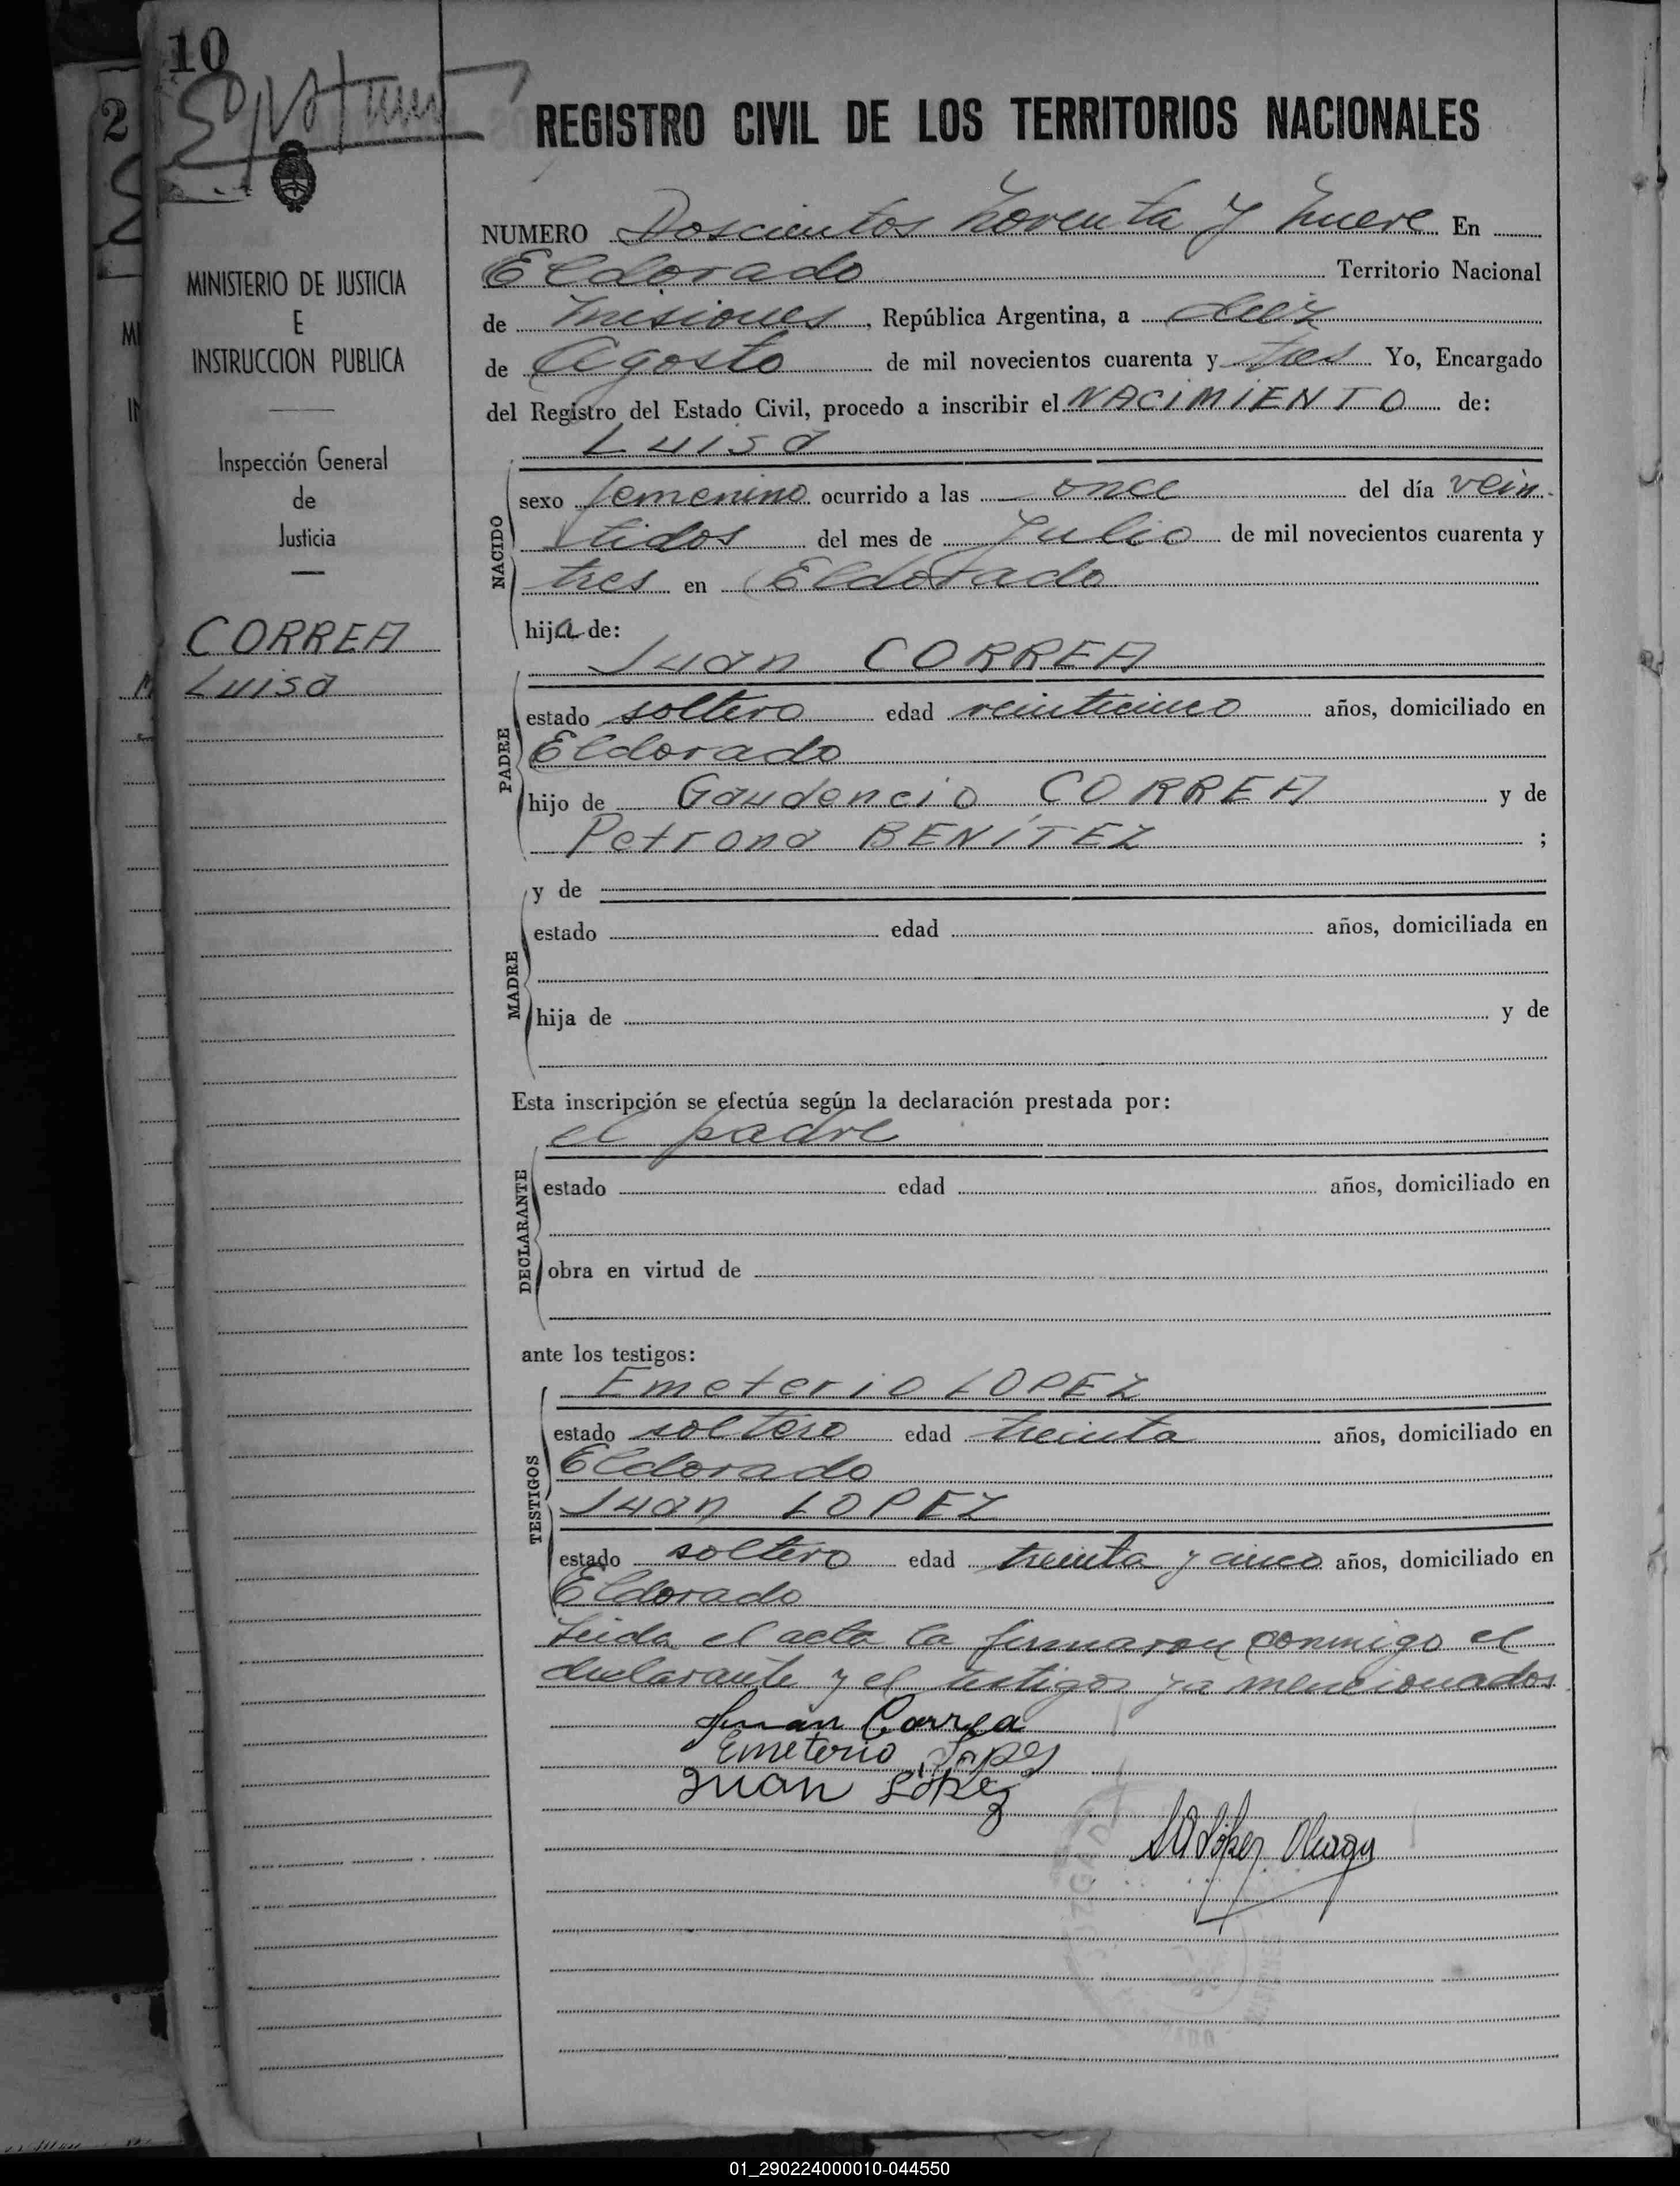 10
2
REGISTRO CIVIL DE LOS TERRITORIOS NACIONALES
MINISTERIO DE JUSTICIA
E
INSTRUCCION PUBLICA
Inspección General
de
Justicia
CORREA
Luisa
NUMERO Doscientos noventa y nueve En
Eldorado Territorio Nacional
de Misiones, República Argentina, a diez
de Agosto de mil novecientos cuarenta y tres Yo, Encargado
del Registro del Estado Civil, procedo a inscribir el NACIMIENTO de:
Luisa
NACIDO
sexo femenino ocurrido a las once del día vein
tidos del mes de Julio de mil novecientos cuarenta y
tres en Eldorado
hija de:
Juan CORREA
PADRE
estado soltero edad veinticinco años, domiciliado en
Eldorado
hijo de Gaudencio CORREA y de
Petrona BENÍTEZ ;
MADRE
y de
estado edad años, domiciliada en
hija de y de
Esta inscripción se efectúa según la declaración prestada por:
el padre
DECLARANTE
estado edad años, domiciliado en
obra en virtud de
ante los testigos:
Emeterio LOPEZ
TESTIGOS
estado soltero edad treinta años, domiciliado en
Eldorado
Juan LOPEZ
estado soltero edad treinta y cinco años, domiciliado en
Eldorado
Leida el acta la firmaron conmigo el
declarante y el testigos ya mencionados.
Juan Correa
Emeterio Lopes
Juan López
01_290224000010-044550